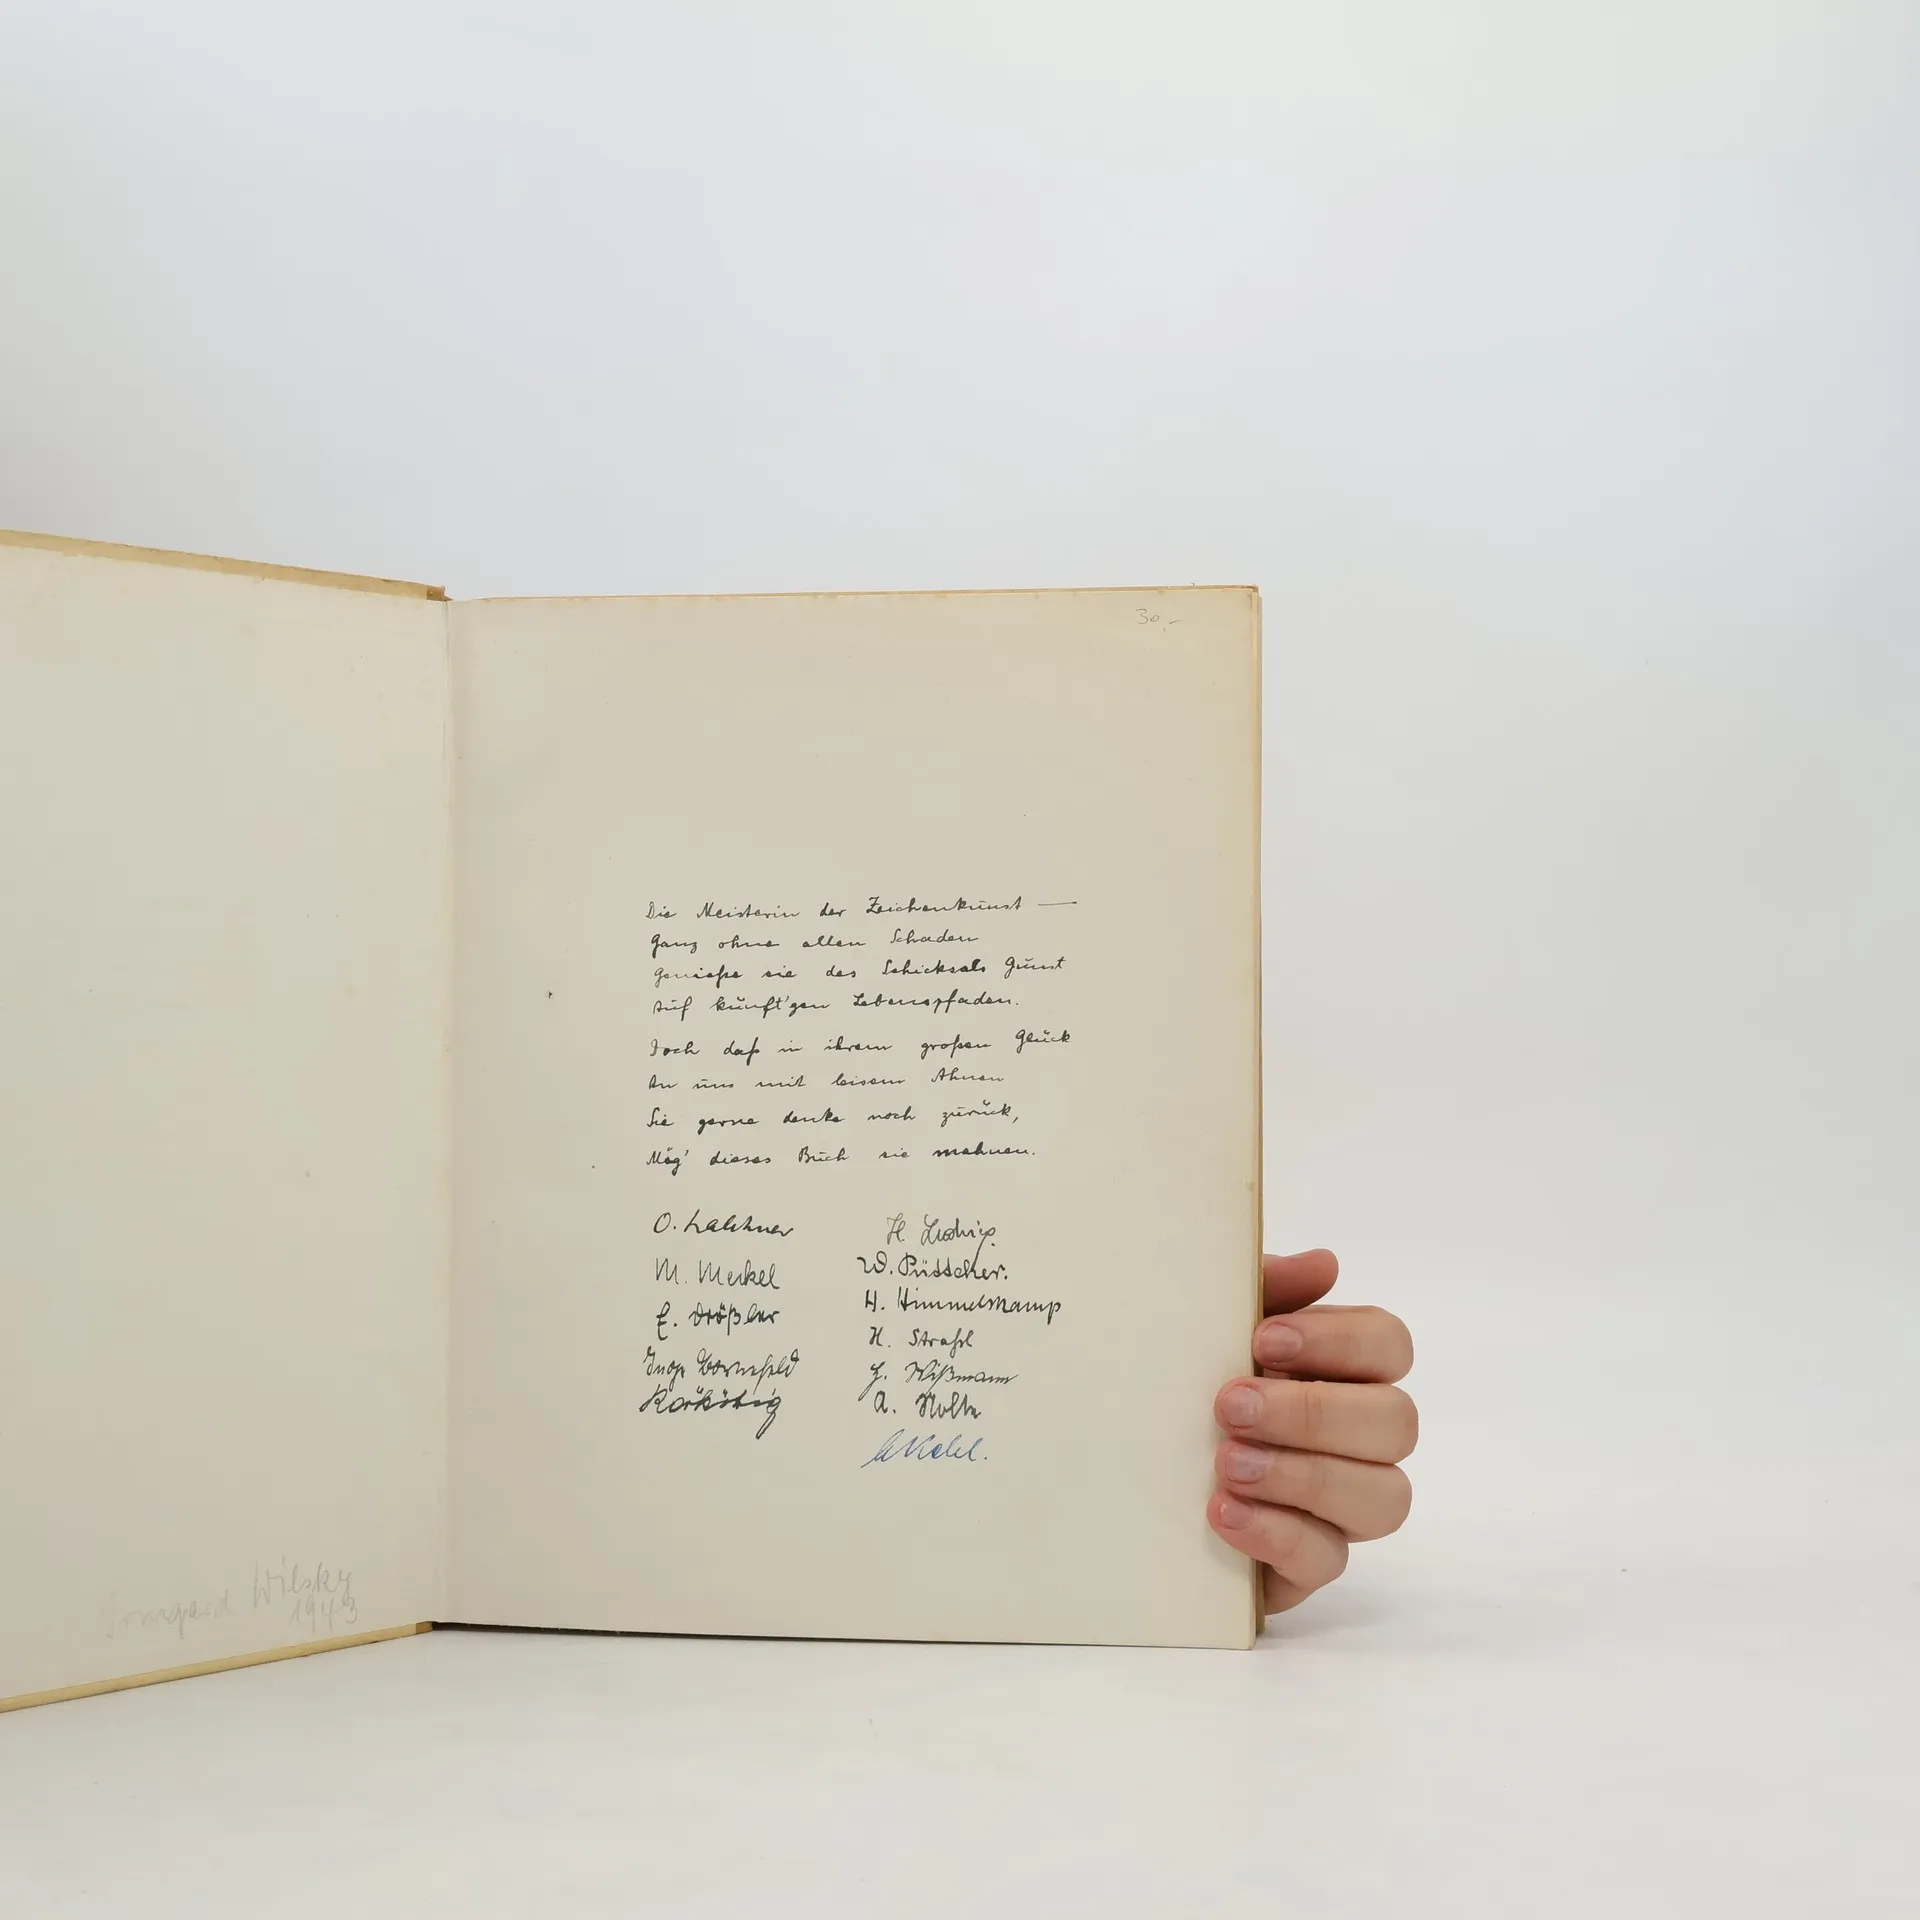 30,-
Die Meisterin der Zeichenkunst —
Ganz ohne allen Schaden
Genieße sie des Schicksals Gunst
Auf künft'gen Lebenspfaden.
Doch daß in ihrem großen Glück
An uns mit leisem Ahnen
Sie gerne denke noch zurück,
Mög' dieses Buch sie mahnen.
O.
M. Merkel
E. Drößler
Inge Bornefeld
H. Ludwig.
W. Püttcher.
H. Himmelskamp
H. Strahl
Wißmann
A. Nolte
Irmgard Wilsky
1943